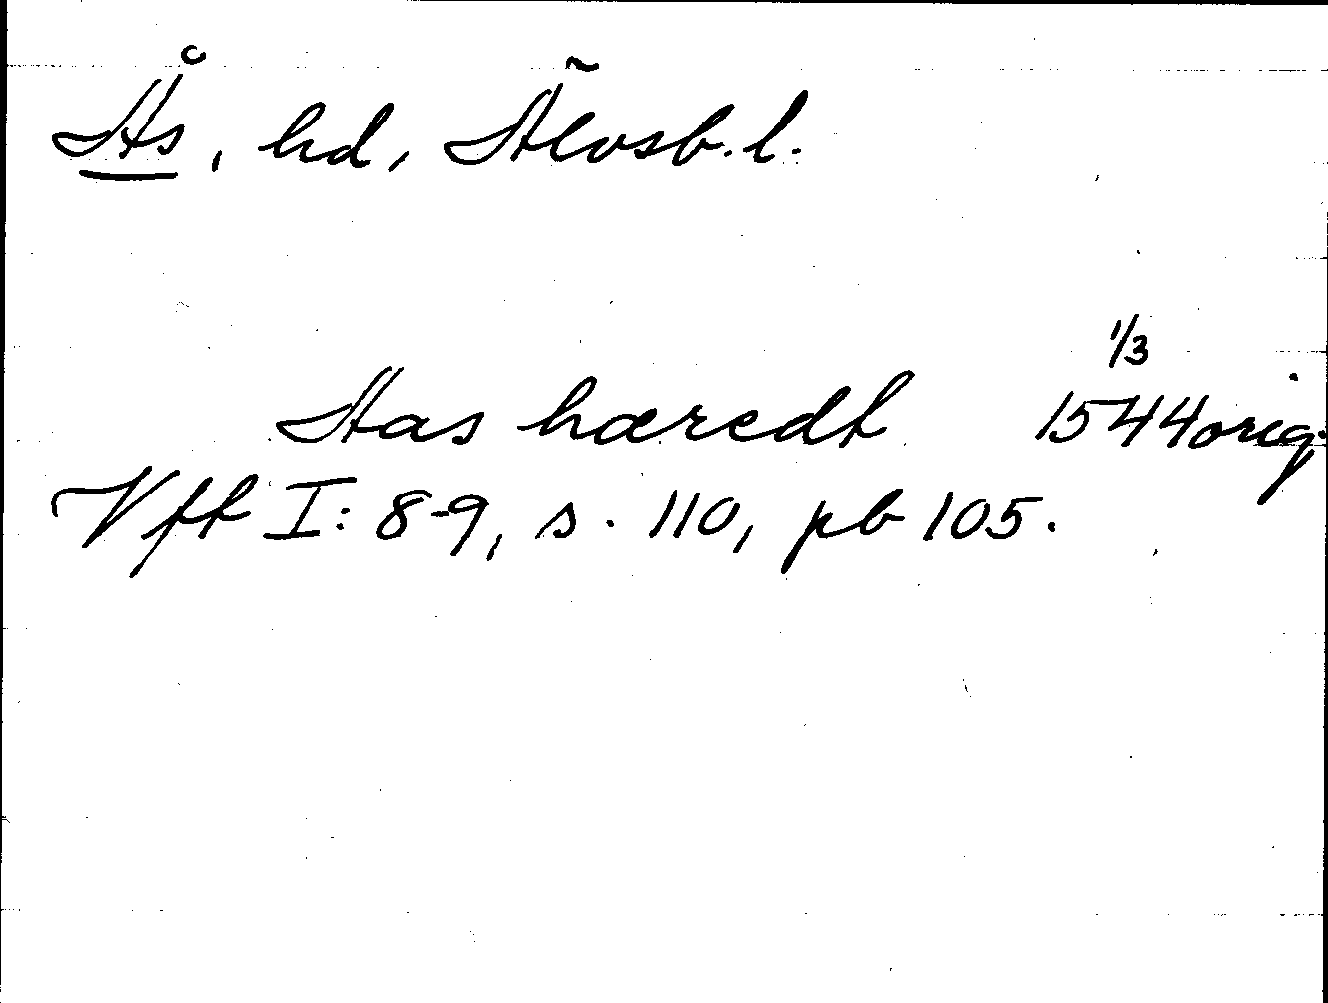 Ås, hd, Älvsb. l.
1/3
Aas hæredt 1544 orig.
Vft I: 8-9, s. 110, pb 105.